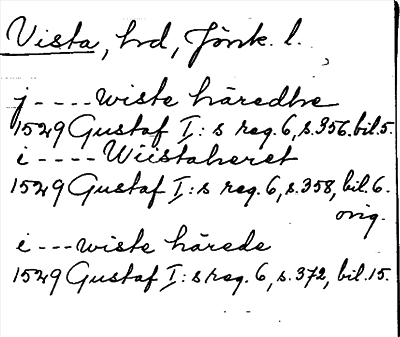 Vista, hd, Jönk. l.
j - - - - wiste häredhe
1529 Gustaf I:s reg. 6, s. 356. bil. 5.
i - - - - Wiistaheret
1529 Gustaf I:s reg. 6, s. 358, bil. 6.
orig.
i - - - wiste härede
1529 Gustaf I:s reg. 6, s. 372, bil. 15.